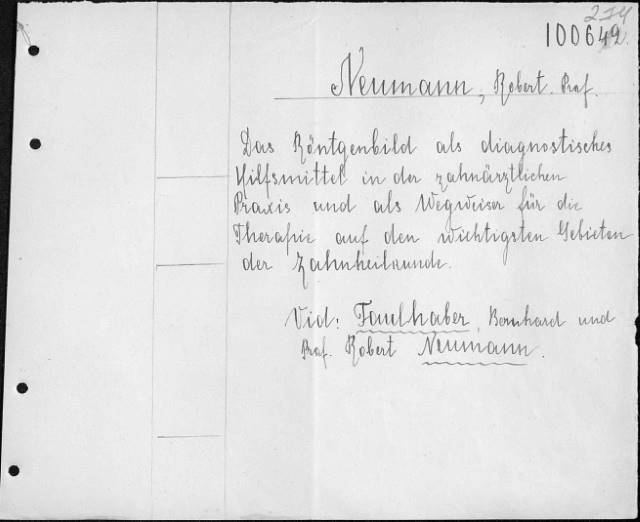 274
100642
Neumann, Robert. Prof.
Das Röntgenbild als diagnostisches
Hilfsmittel in der zahnärztlichen
Praxis und als Wegweiser für die
Therapie auf den wichtigsten Gebieten
der Zahnheilkunde.
Vid: Faulhaber, Bernhard und
Prof. Robert Neumann.